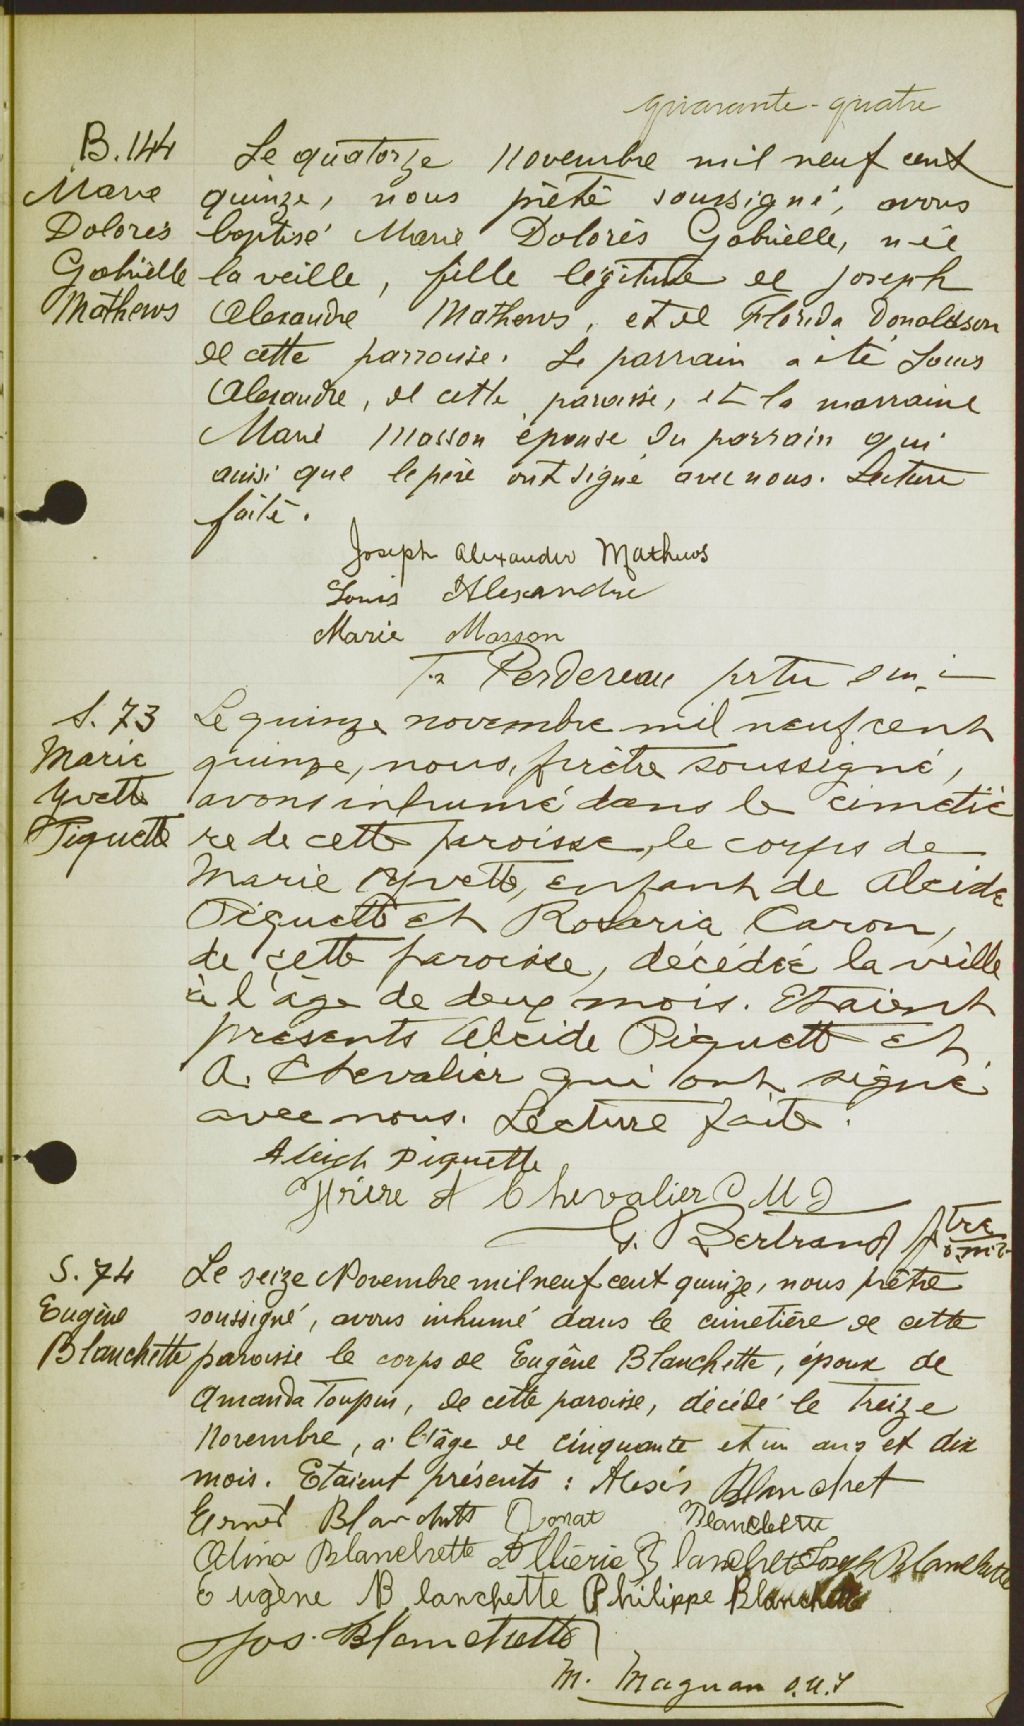 quarante-quatre
B.144
Marie
Dolorès
Gabrielle
Mathews
Le quatorze novembre mil neuf cent
quinze, nous prêtre soussigné, avons
baptisé Marie Dolorès Gabrielle, née
la veille, fille légitime de Joseph
Alexandre Mathews, et de Florida Donaldson
de cette parroisse. Le parrain a été Louis
Alexandre, de cette paroisse, et la marraine
Marie Masson épouse du parrain qui
ainsi que le père ont signé avec nous. Lecture
faite.
Joseph Alexander Mathews
Louis Alexandre
Marie Masson
Perdereau prtre o.m.i
S. 73
Marie
Yvette
Piquette
Le quinze novembre mil neuf cent
quinze, nous, prêtre soussigné,
avons inhumé dans le cimetiè
re de cette paroisse, le corps de
Marie Yvette, enfant de Alcide
Piquette et Rosaria Caron,
de cette paroisse, décédée la veille
à l'âge de deux mois. Etaient
présents Alcide Piquette et
A. Chevalier qui ont signé
avec nous. Lecture faite.
Piquette
A Chevalier O M I
G. Bertrand ptre
o.m.i.
S. 74
Eugène
Blanchette
Le seize Novembre mil neuf cent quinze, nous prêtre
soussigné, avons inhumé dans le cimetière de cette
paroisse le corps de Eugène Blanchette, époux de
Amanda Toupin, de cette paroisse, décédé le treize
Novembre, à l'âge de cinquante et un ans et dix
mois. Etaient présents : Alexis Blanchet
Ernest Blanchette Donat Blanchette
Alina Blanchette Blanchette Joseph Blanchette
Eugène Blanchette Philippe Blanchette
Jos. Blanchette
M. Magnan O.M.I